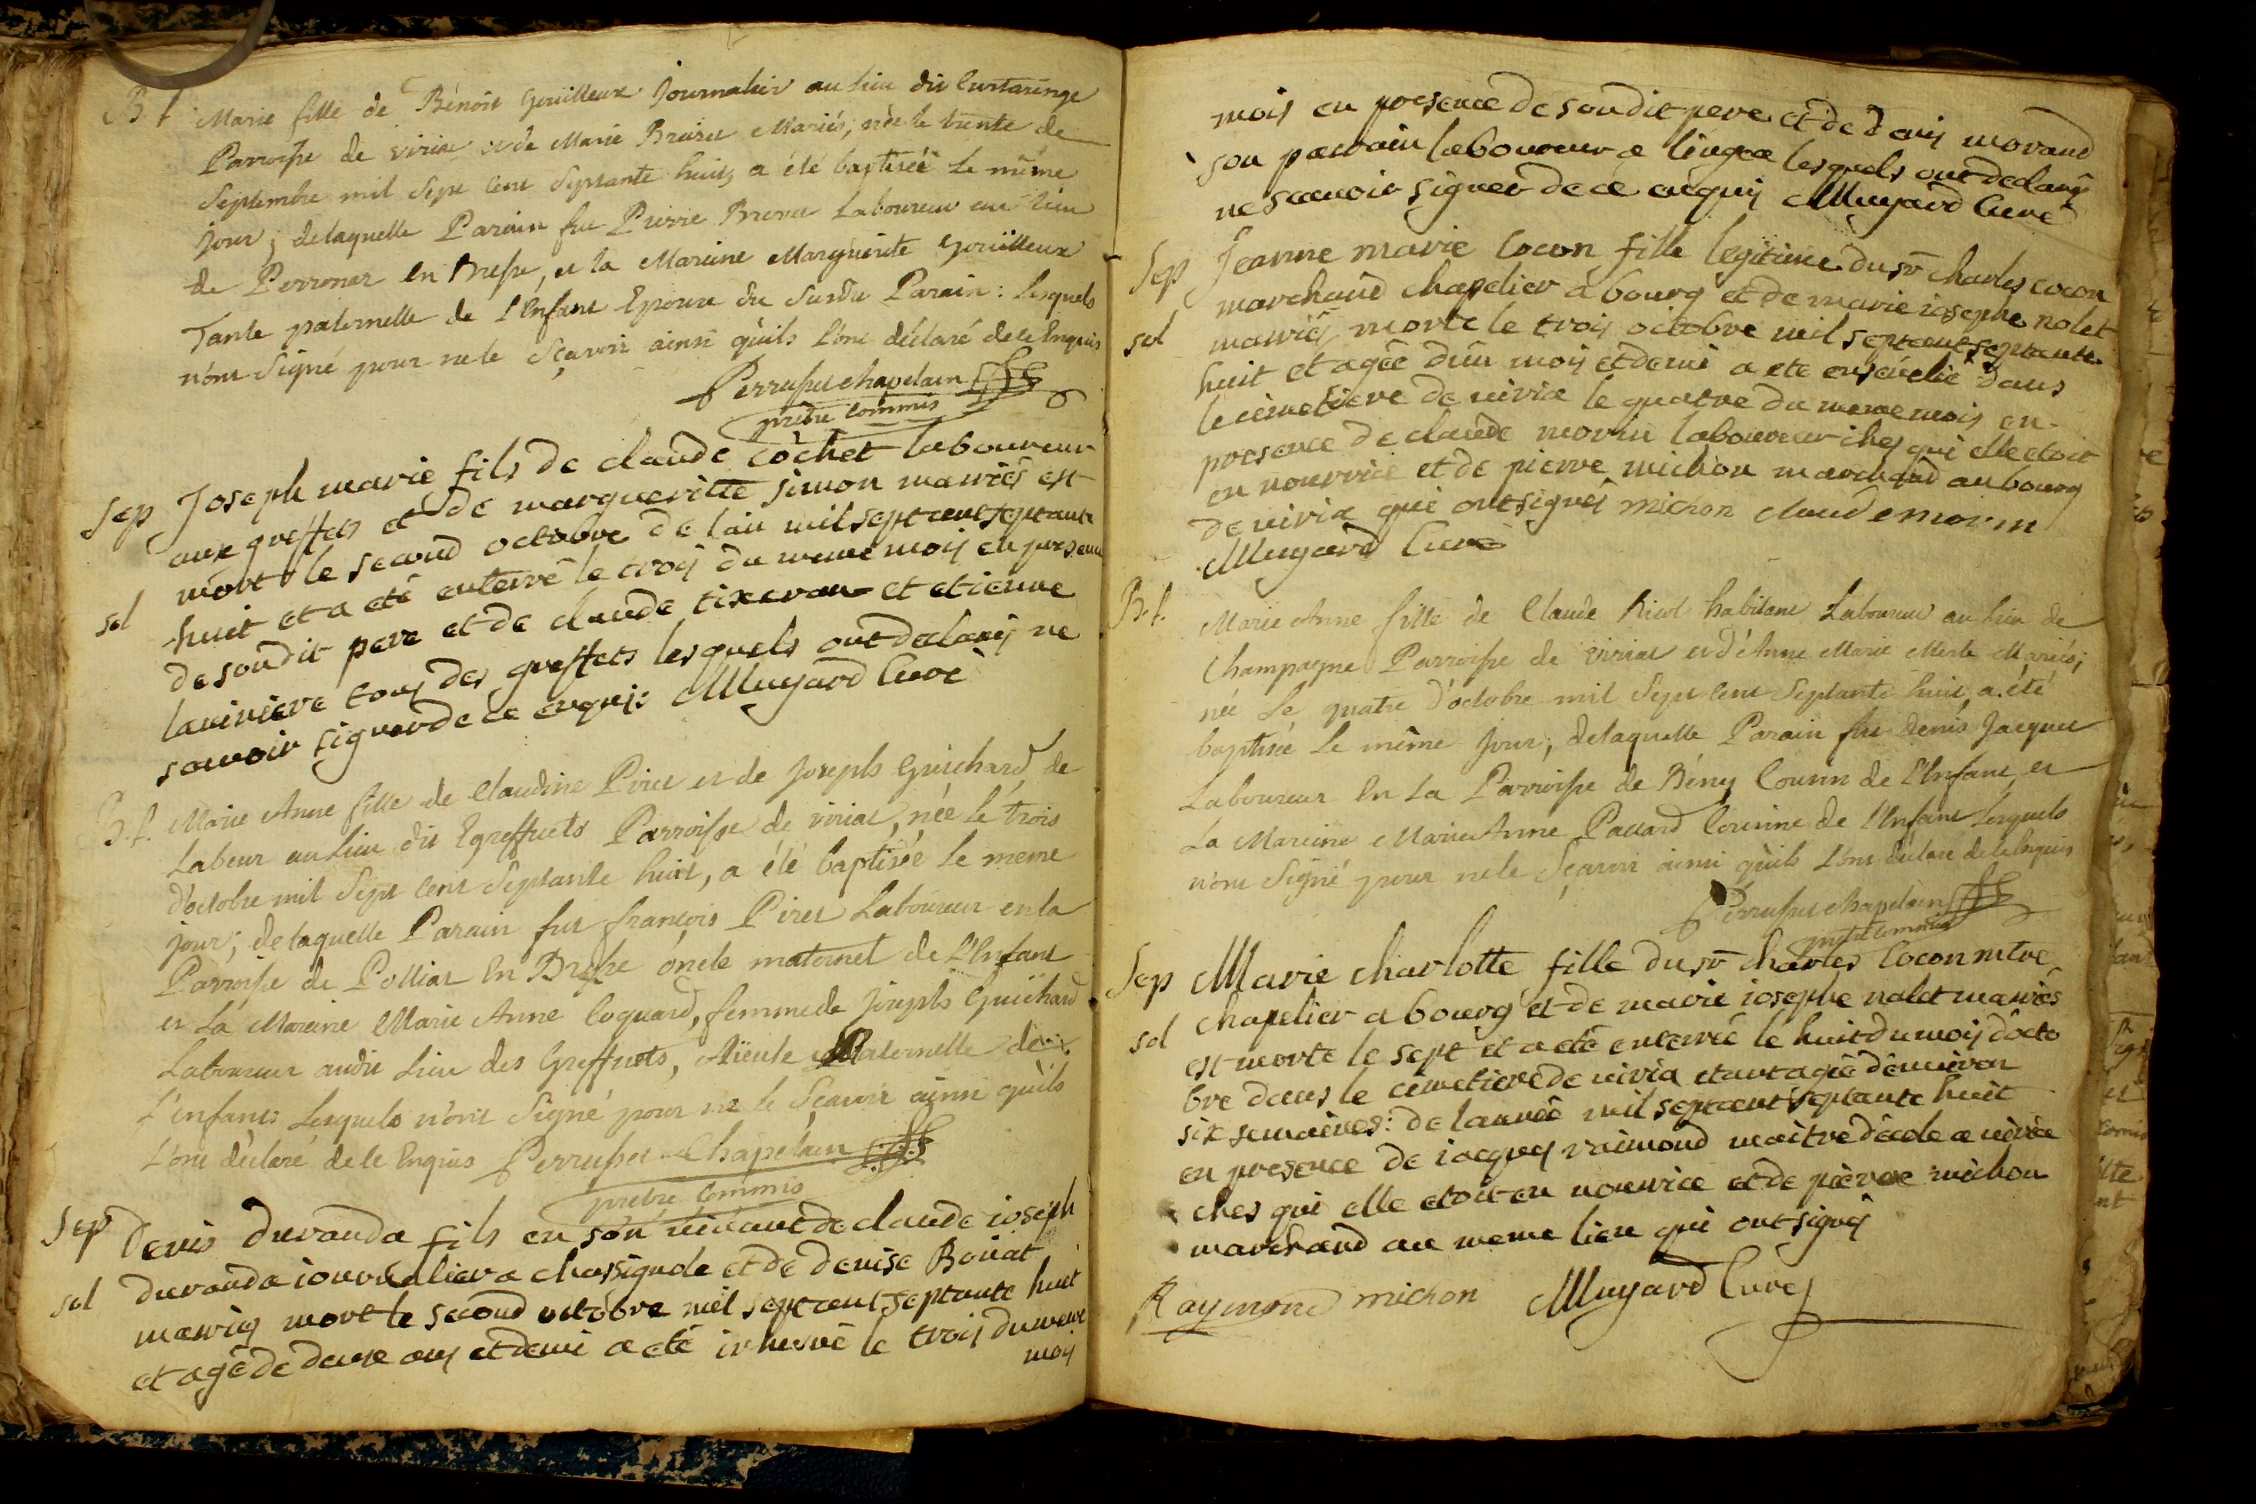 B f Marie fille de Bénoit Gouilleux Journalier au lieu dit Curtaringe
Parroisse de viriat et de Marie Brevet Mariés, née le trente de
Septembre mil Sept Cent Septante huit, a été baptisée Le même
Jour, delaquelle Parain fut Pierre Brevet Laboureur au lieu
de Perronas En Bresse, et la Maraine Marguerite Gouilleux
Tante paternelle de L'Enfant Epouse du Susdit Parain: lesquels
n'ont Signé pour ne le Sçavoir ainsi qu'ils L'ont déclaré de ce Enquis
Perrusset chapelain
prêtre Commis
Sep Joseph marie fils de claude cochet laboureur
aux greffets et de margueritte simon mariés est
mort le second octobre de lan mil sept cent septante
sol huit et a eté enterré le trois du meme mois en presence
de son dit pere et de claude tixeran et etienne
laviniere tous des greffets lesquels ont declarés ne
savoir signer de ce enquis Mugard Curé
B.f. Marie Anne fille de Claudine Piret et de Joseph Guichard de
Labeur au Lieu dit Egreffiets Parroisse de viriat, née le trois
d'octobre mil Sept Cent Septante huit, a été baptisée le meme
jour; de laquelle Parain fut françois Piret Laboureur en la
Parroisse de Polliat En Bresse óncle maternel de L'Enfant
et La Maraine Marie Anne Coquard, femme de Joseph Guichard
Laboureur audit Lieu des Greffiets, Aïeule Paternelle de
L'enfant: Lesquels n'ont Signé pour ne le Sçavoir ainsi qu'ils
L'ont déclaré de ce Enquis Perrusset Chapelain
prêtre Commis
Sep Denis duranda fils en son vivant de claude ioseph
sol duranda iournalier a chassignole et de denise Boüat
mariés mort le second octobre mil sept cent septante huit
et agé de deux ans et demi a eté inhumé le trois du meme
mois
mois en presence de son dit pere et de denis morand
son parrain laboureur a lingeat lesquels ont declarés
ne scavoir signer de ce enquis Mugard Curé
Sep Jeanne marie Cocon fille legitime du sr charles cocon
marchand chapelier a bourg et de marie iosephe nolet
sol mariés morte le trois octobre mil sept cent septante
huit et agée d'un mois et demi a ete ensévelie dans
le cimetiere de viria le quatre du meme mois en
presence de claude morin laboureur chez qui elle etoit
en nourrice et de pierre michon marchand au bourg
de viria qui ont signés michon claude morin
Mugard Curé
B.f. Marie Anne fille de Claude Ricol habitant Laboureur au Lieu de
Champagne Parroisse de viriat et d'Anne Marie Merle Mariés;
née Le quatre d'octobre mil Sept Cent Septante huit, a été
baptisée Le même Jour; delaquelle Parain fut denis Jacquet
Laboureur En La Parroisse de Bény Cousin de l'Enfant et
La Maraine Marie Anne Paccard Cousine de l'Enfant Lesquels
n'ont Signé pour ne le Sçavoir ainsi qu'ils L'ont déclaré de ce Enquis
Perrusset chapelain
prêtre Commis
Sep Marie charlotte fille du sr charles Cocon mtre
chapelier a bourg et de marie iosephe nalet mariés
sol est morte le sept et a eté enterrée le huit du mois d'octo
bre dans le cimetiere de viria etant agée d'environ
six semaines: de lannée mil sept cent septante huit
en presence de iacques raimond maitre d'ecole a viria
ches qui elle etoit en nourrice et de pierre michon
marchand au meme lieu qui ont signés
Raymond michon Mugard Curé